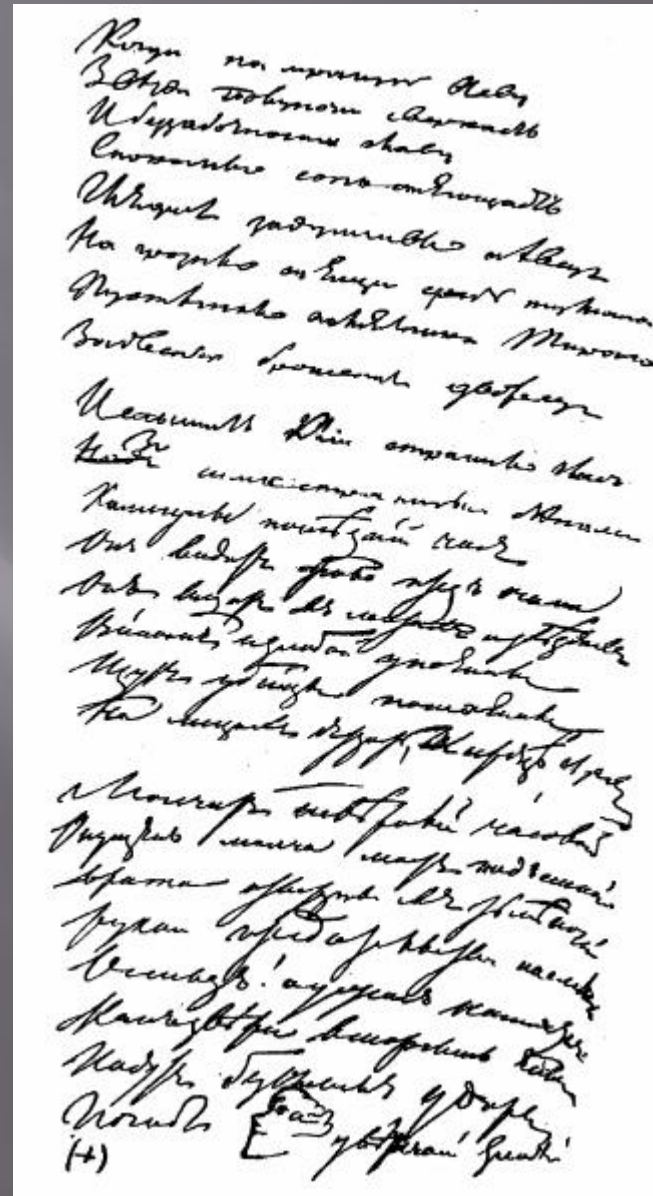 Когда на мрачную Неву
Звѣзда полуночи сверкаетъ
И беззаботную главу
Спокойный сонъ отягощаетъ
Глядитъ задумчивый пѣвецъ
На грозно спящій средь тумана
Пустынный памятникъ Тирана
Забвенью брошенный дворецъ
И слышитъ Кліи страшный гласъ
За сими страшными стѣнами
Калигулы послѣдній часъ
Онъ видитъ живо предъ очами
Онъ видитъ въ лентахъ и звѣздахъ
Виномъ и злобой упоенны
Идутъ убійцы потаенны
На лицахъ дерзость, въ сердцѣ страхъ
Молчитъ невѣрный часовой
Опущенъ молча мостъ подъемный
Врата отверсты въ тьмѣ ночной
Рукой предательства наемной
О стыдъ! о ужасъ нашихъ дней
Какъ звѣри вторглись
Падутъ безславные удары
Погибъ увѣнчанный злодѣй
(+)